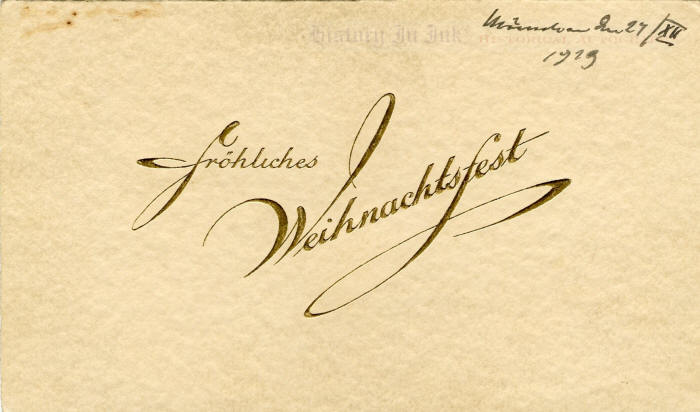 History In Ink
München den 27/XII
1929
Fröhliches
Weihnachtsfest